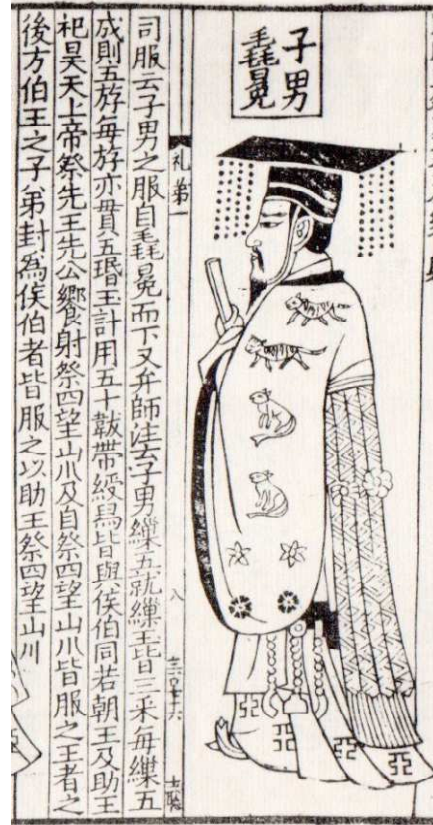 子男
毳冕
礼第一
八
司服云子男之服自毳冕而下又弁師注云子男繅五就繅玉皆三采每繅五
成則五斿每斿亦貫五瑉玉計用五十韍帶綬舄皆與侯伯同若朝王及助王
祀昊天上帝祭先王先公饗射祭四望山川及自祭四望山川皆服之王者之
後方伯王之子弟封為侯伯者皆服之以助王祭四望山川